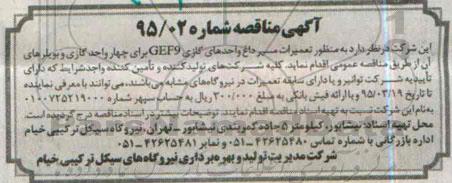 آگهی مناقصه شماره ۹۵/۰۲
این شرکت در نظر دارد به منظور تعمیرات مسیر داغ واحدهای گازی GEF9 برای چهار واحد گازی و بویلرهای
آن از طریق مناقصه عمومی اقدام نماید. کلیه شرکت‌های تولیدکننده و تأمین‌کننده واجد شرایط که دارای
تأییدیه شرکت توانیر و یا دارای سابقه تعمیرات در نیروگاه‌های مشابه می‌باشند، می‌توانند با معرفی نماینده
تا تاریخ ۹۵/۰۳/۱۹ و با ارائه فیش بانکی به مبلغ ۳۰۰/۰۰۰ ریال به حساب سپهر شماره ۰۱۰۰۷۲۵۲۱۹۰۰۰
به نام این شرکت نسبت به تهیه اسناد مناقصه اقدام نمایند. توضیحات بیشتر در اسناد مناقصه درج گردیده است.
محل تهیه اسناد: نیشابور، کیلومتر ۵ جاده کمربندی نیشابور ـ تهران، نیروگاه سیکل ترکیبی خیام
اداره بازرگانی با شماره تماس ۴۲۶۲۵۴۸۰ـ۰۵۱ و نمابر ۴۲۶۲۵۴۸۱ ـ ۰۵۱
شرکت مدیریت تولید و بهره‌برداری نیروگاه‌های سیکل ترکیبی خیام